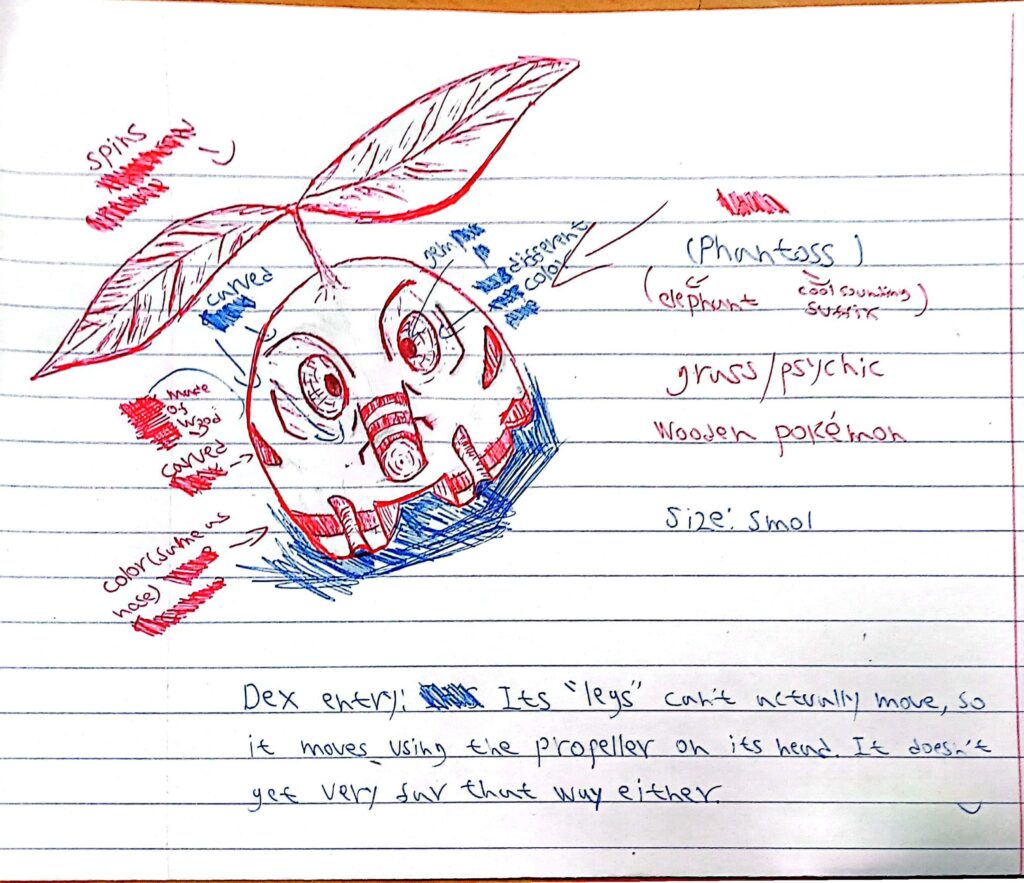 spins
(Phantoss)
(elephant cool sounding suffix)
gem
different
color
carved
grass/psychic
made
of
wood
carved
Wooden pokémon
size: smol
color (same as
nose)
Dex entry: Its "legs" can't actually move, so
it moves using the propeller on its head. It doesn't
get very far that way either.